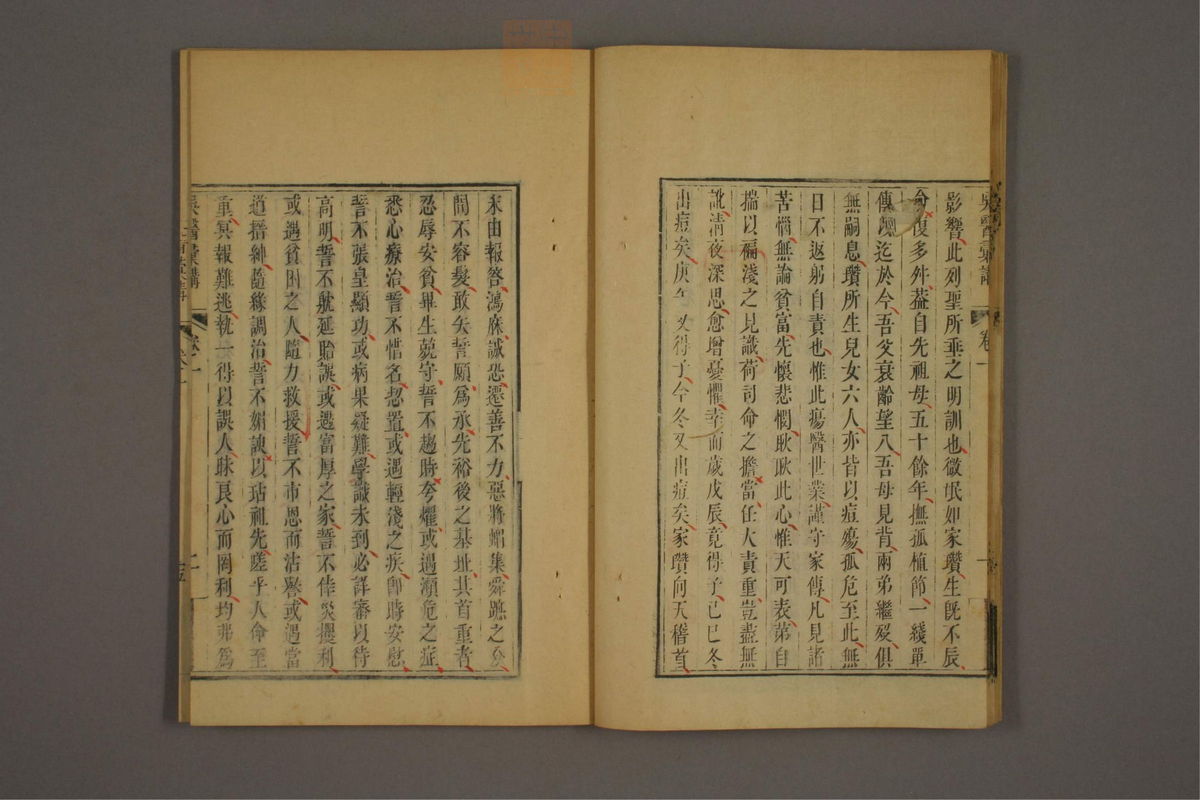 影響此列聖所垂之明訓也微氓如家瓚生旣不辰
命復多舛葢自先祖母五十餘年撫孤植節一綫單
傳迄於今吾父衰齡望八吾母見背兩弟繼歿俱
無嗣息瓚所生兒女六人亦皆以痘殤孤危至此無
日不返躬自責也惟此瘍醫世業謹守家傳凡見諸
苦惱無論貧富先懷悲憫耿耿此心惟天可表第自
揣以褊淺之見識荷司命之擔當任大責重豈盡無
訛清夜深思愈增憂懼幸而歲戊辰竟得子己巳冬
出痘矣庚午又得子今冬又出痘矣家瓚向天稽首
未由報答鴻庥誠恐遷善不力惡將媢集舜蹠之分
間不容髮敢矢誓願爲承先裕後之基址其首重者
忍辱安貧畢生兢守誓不趨時夸燿或遇瀕危之症
悉心療治誓不惜名恝置或遇輕淺之疾卽時安慰
誓不張皇顯功或病果疑難學識未到必詳審以待
高明誓不躭延貽誤或遇富厚之家誓不佳災攫利
或遇貧困之人隨力救援誓不市恩而沽譽或遇當
道搢紳隨緣調治誓不媚諛以玷祖先嗟乎人命至
重冥報難逃執一得以誤人昧良心而罔利均弗爲
吳醫彙講
卷一
吳醫彙講
卷一